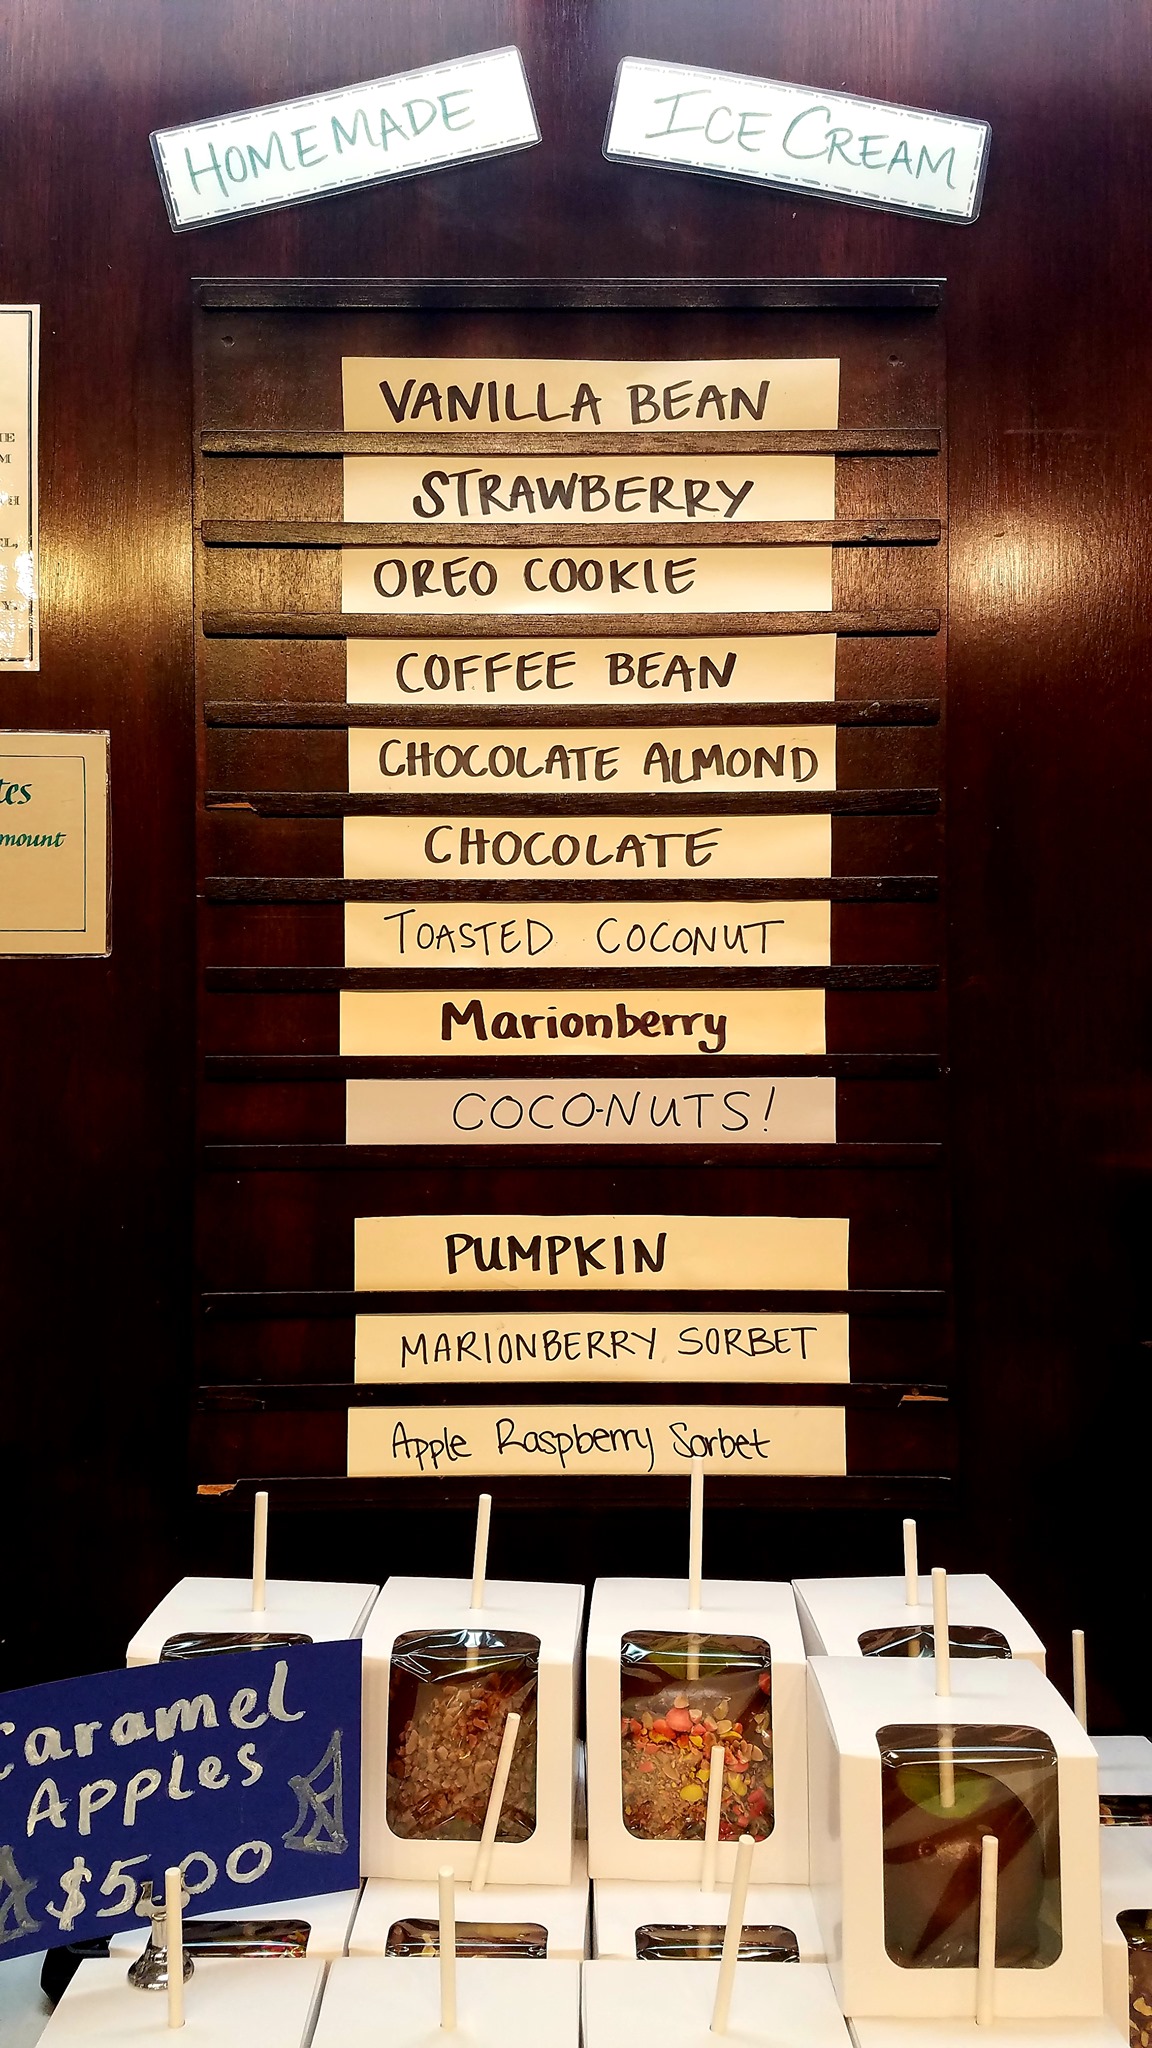 HOMEMADE
ICE CREAM
VANILLA BEAN
STRAWBERRY
OREO COOKIE
COFFEE BEAN
CHOCOLATE ALMOND
CHOCOLATE
TOASTED COCONUT
Marionberry
COCO-NUTS!
PUMPKIN
MARIONBERRY SORBET
Apple Raspberry Sorbet
mount
Caramel
Apples
$5.00